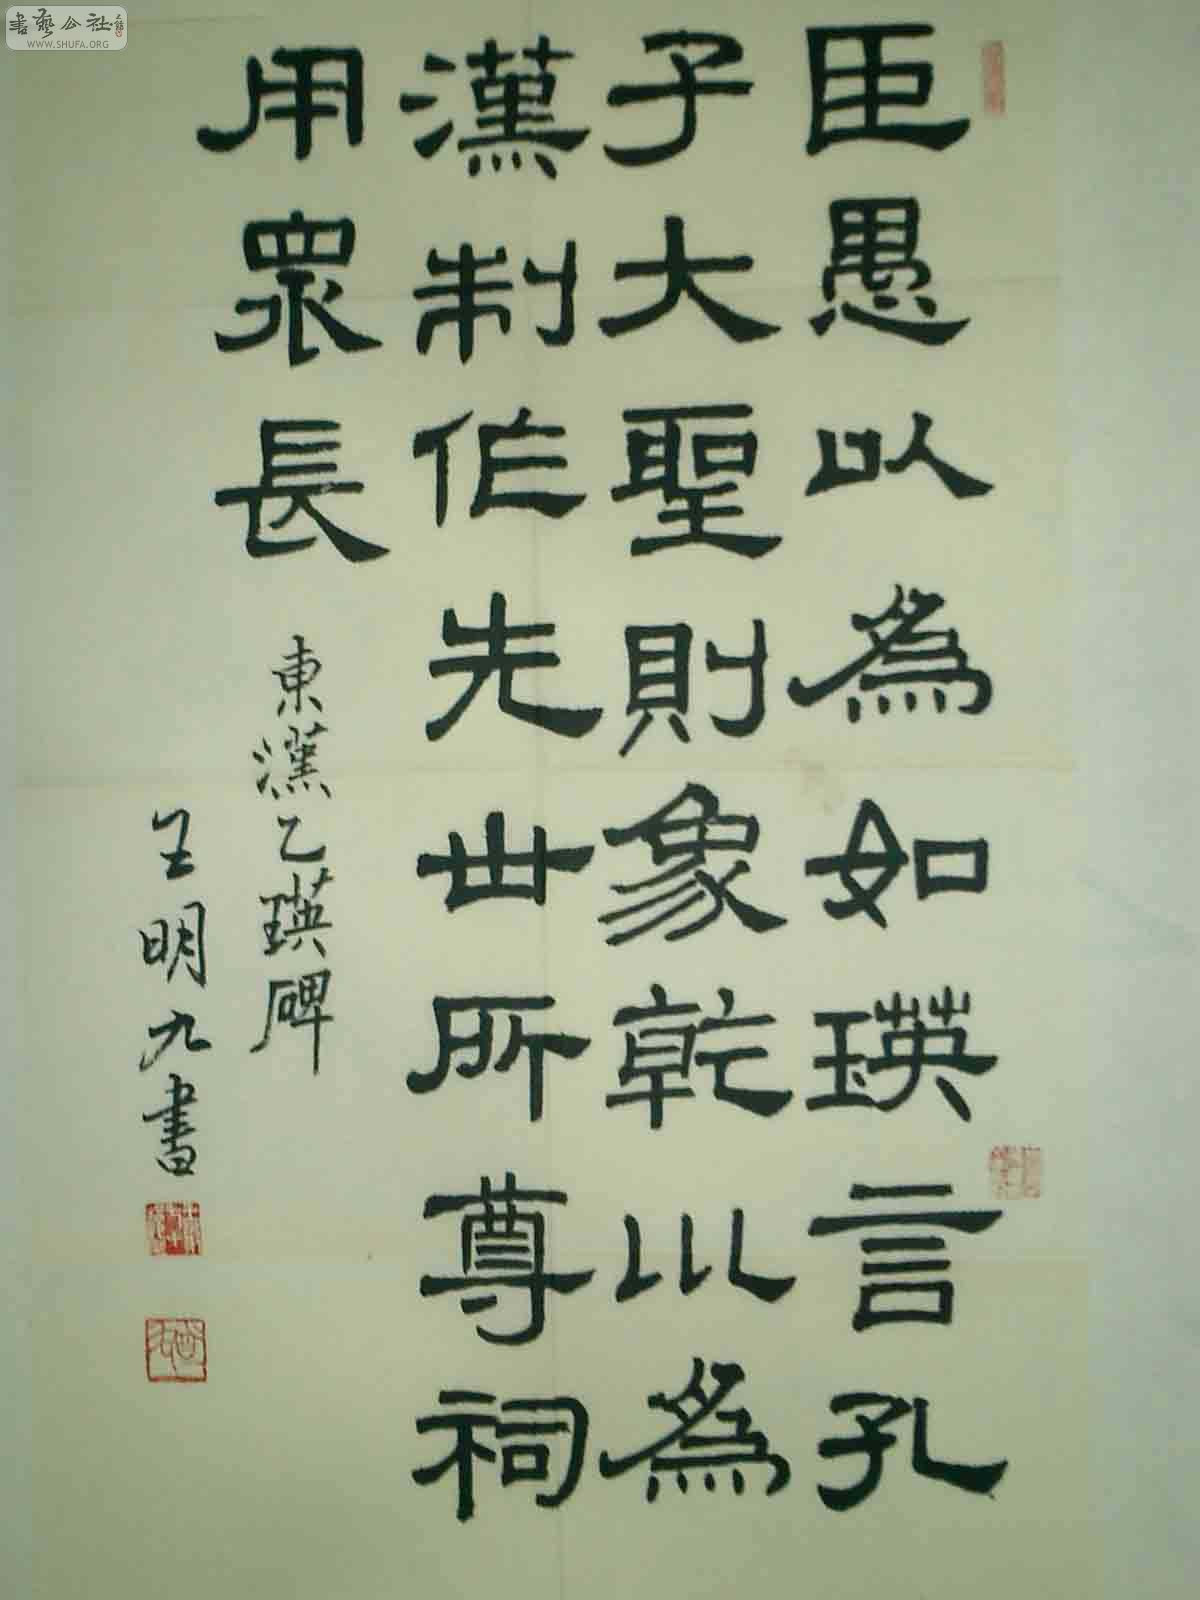 臣愚以爲如瑛言孔
子大聖則象乾川爲
漢制作先世所尊祠
用眾長
東漢乙瑛碑
王明九書
書藝公社
WWW.SHUFA.ORG